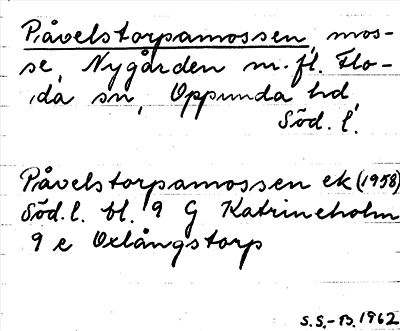 Påvelstorpamossen, mos-
se, Nygården m.fl. Flo-
da sn, Oppunda hd,
Söd. l.
Påvelstorpamossen ek (1958)
Söd. l. bl. 9 G Katrineholm
9 e Oxlångstorp
S.S.-B. 1962